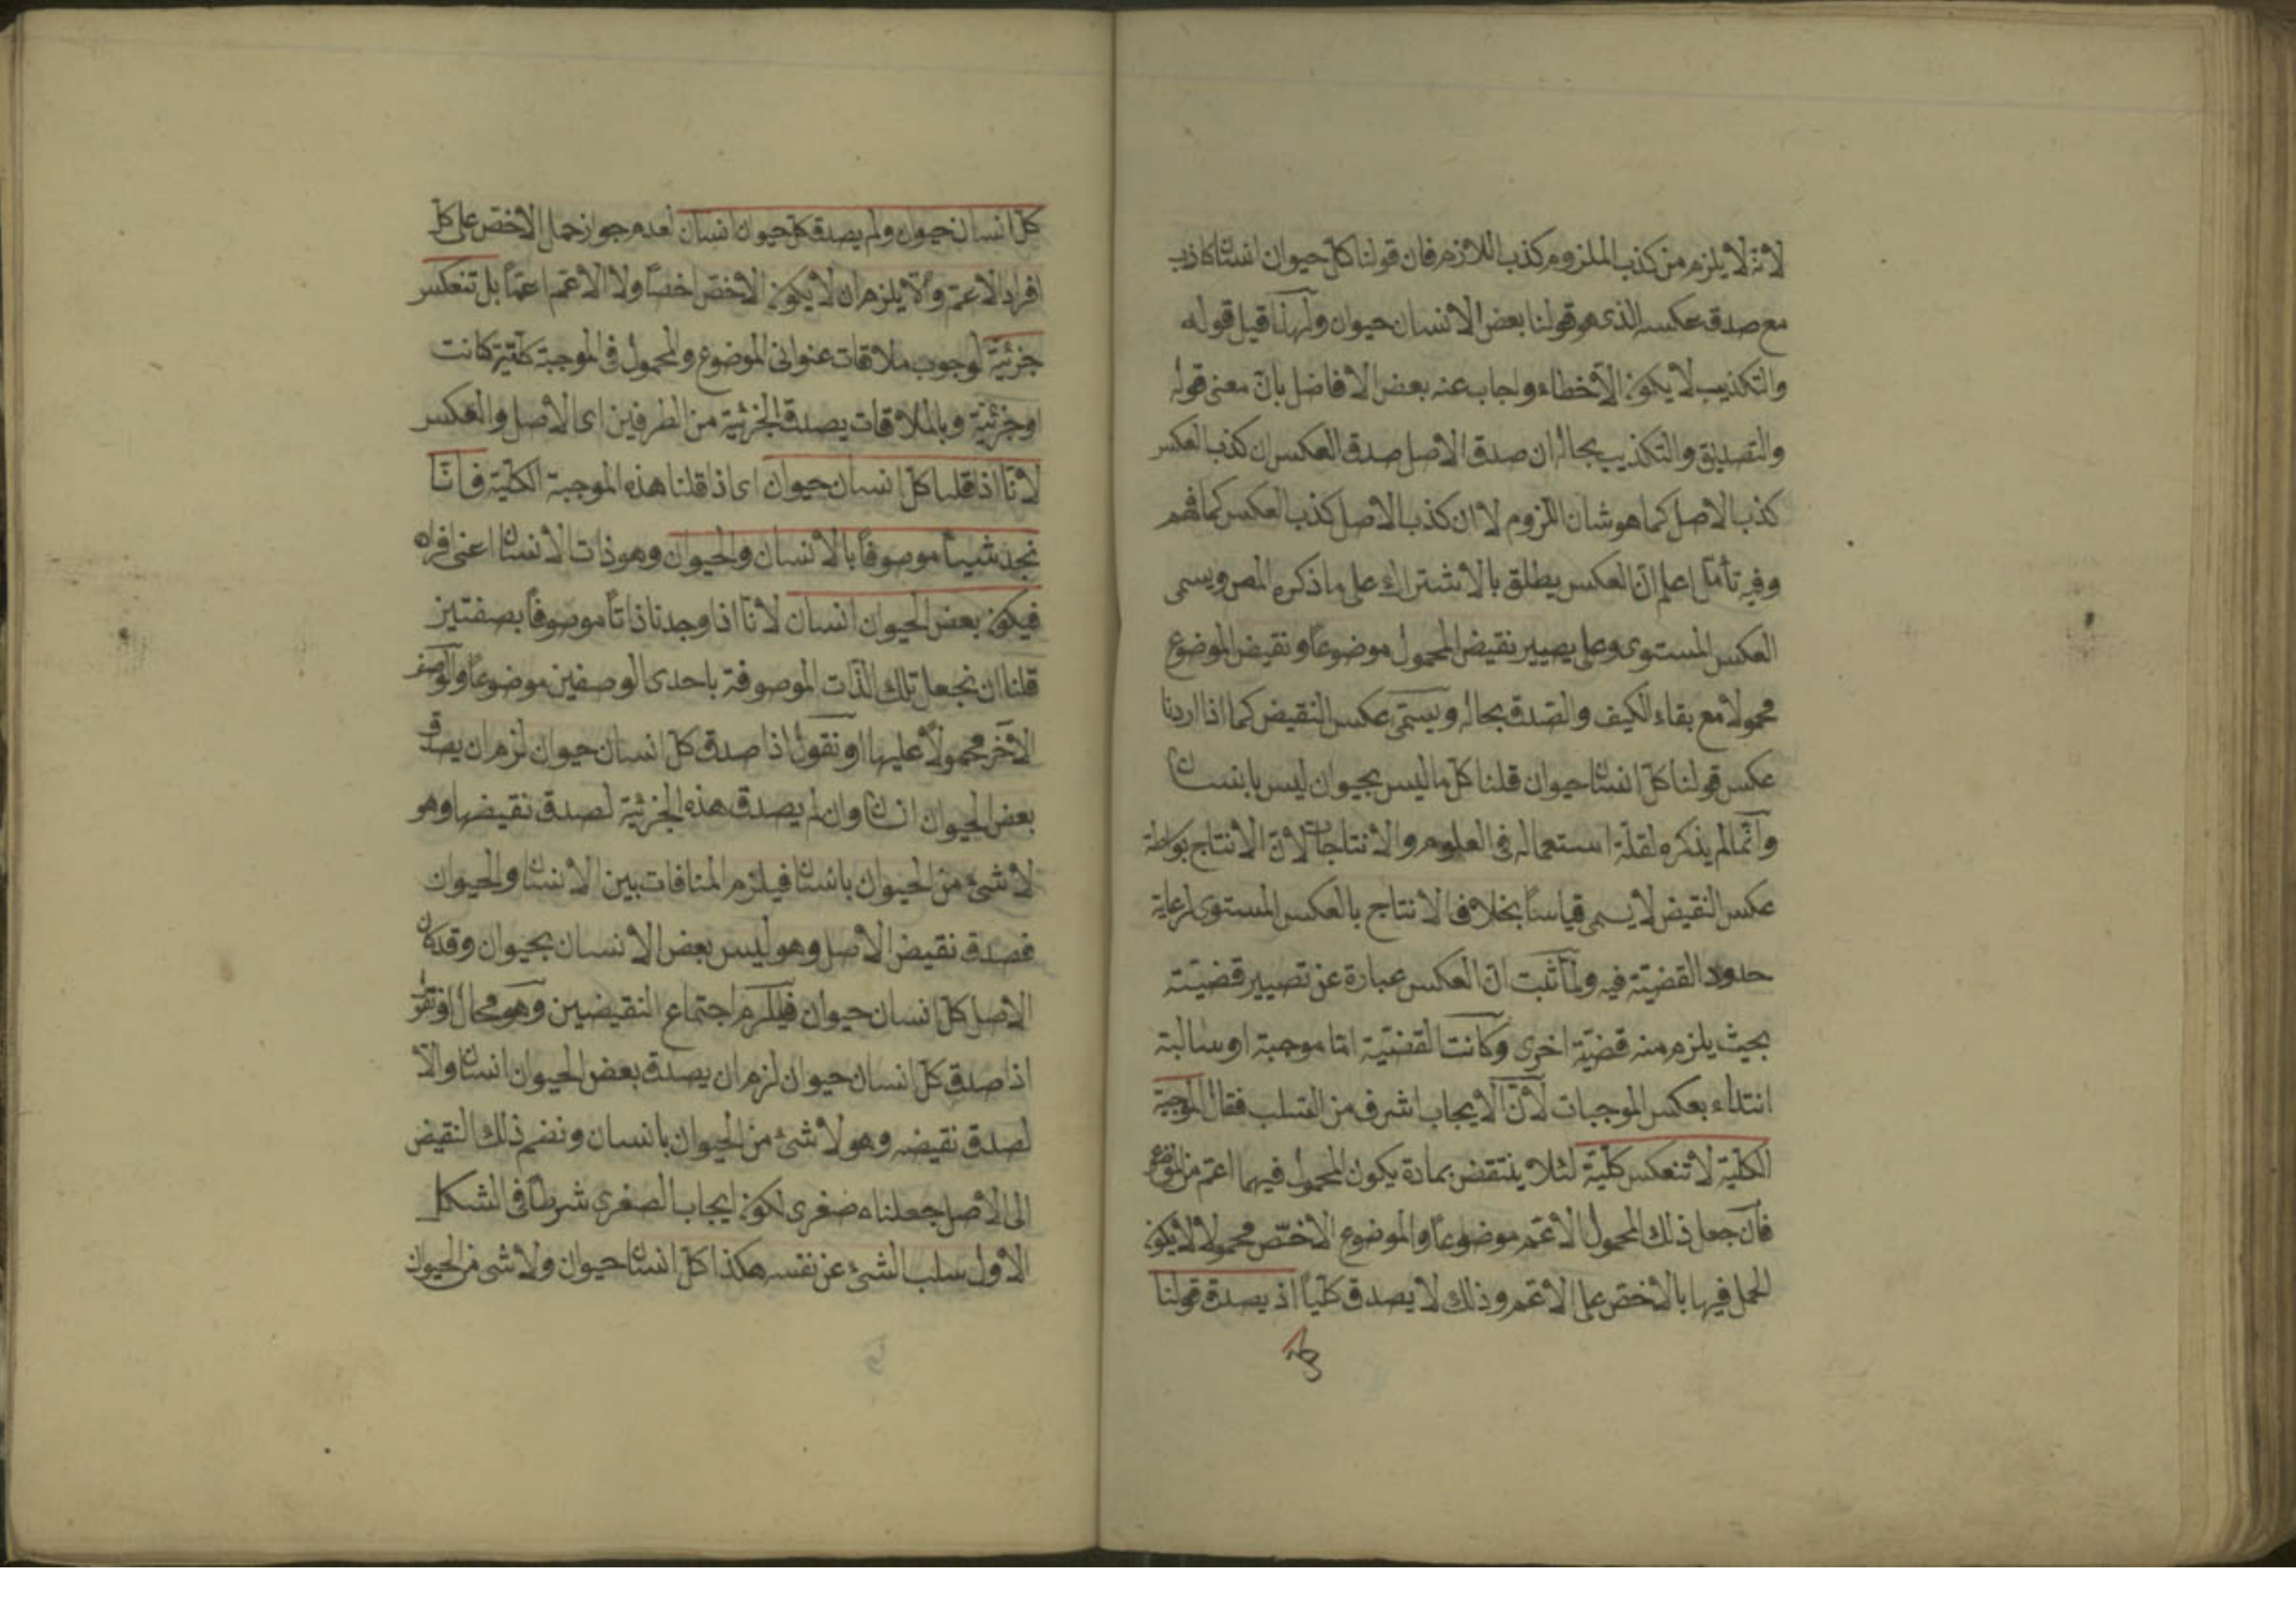 لانه لا يلزم من كذب الملزوم كذب اللازم فان قولنا كل حيوان انسان كاذب
مع صدق عكسه الذى هو قولنا بعض الانسان حيوان ولهذا قيل قوله
والتكذيب لا يكون الا خطاء واجاب عنه بعض الافاضل بان معنى قوله
والتصديق والتكذيب بحاله ان صدق الاصل صدق العكس ان كذب العكس
كذب الاصل كما هو شان اللزوم لا ان كذب الاصل كذب العكس كما فهم
وفيه تأمل اعلم ان العكس يطلق بالاشتراك على ما ذكره المص ويسمى
العكس المستوى وعلى يصيير نقيض المحمول موضوعاً ونقيض الموضوع
محمولا مع بقاء الكيف والصدق بحاله ويسمّى عكس النقيض كما اذا اردنا
عكس قولنا كلّ انسان حيوان قلنا كل ما ليس بحيوان ليس بانسان
وانّما لم يذكره لقلّة استعماله فى العلوم والانتاجات لانّ الانتاج بواسطة
عكس النقيض لا يسمى قياساً بخلاف الانتاج بالعكس المستوى لرعاية
حدود القضيّة فيه ولمّا ثبت انّ العكس عبارة عن تصيير قضيّة
بحيث يلزم منه قضيّة اخرى وكانت القضيّة امّا موجبة او سالبة
ابتداء بعكس الموجبات لانّ الايجاب اشرف من السّلب فقال الموجبة
الكليّة لا تنعكس كليّة لئلا ينتقض بمادة يكون المحمول فيها اعم من الموضوع
فان جعل ذلك المحمول الاعمّ موضوعاً والموضوع الاخصّ محمولا لا يكون
الحمل فيها بالاخصّ على الاعمّ وذلك لا يصدق كليّاً اذ يصدق قولنا
كل
كلّ انسان حيوان ولم يصدق كلّ حيوان انسان لعدم جواز حمل الاخصّ على كلّ
افراد الاعمّ والّا يلزم ان لا يكون الاخصّ اخصّاً ولا الاعمّ اعمّاً بل تنعكس
جزئيّة لوجوب ملاقات عنوانى الموضوع والمحمول فى الموجبة كليّة كانت
او جزئيّة وبالملاقات يصدق الجزئيّة من الطرفين اى الاصل والعكس
لانّا اذا قلنا كلّ انسان حيوان اى اذا قلنا هذه الموجبة الكليّة فانّا
نجد شيئاً موصوفاً بالانسان والحيوان وهو ذات الانسان اعنى افراده
فيكون بعض الحيوان انسان لانّا اذا وجدنا ذاتاً موصوفاً بصفتين
قلنا ان نجعل تلك الذّات الموصوفة باحدى الوصفين موضوعاً والوصف
الآخر محمولاً عليها او نقول اذا صدق كلّ انسان حيوان لزم ان يصدق
بعض الحيوان انسان وان لم يصدق هذه الجزئيّة لصدق نقيضها وهو
لا شئ من الحيوان بانسان فيلزم المنافات بين الانسان والحيوان
فصدق نقيض الاصل وهو ليس بعض الانسان بحيوان وقد كان
الاصل كلّ انسان حيوان فيلزم اجتماع النقيضين وهو محال او نقول
اذا صدق كلّ انسان حيوان لزم ان يصدق بعض الحيوان انسان والّا
لصدق نقيضه وهو لا شئ من الحيوان بانسان ونضم ذلك النقيض
الى الاصل جعلناه صغرى لكون ايجاب الصغرى شرطاً فى الشكل
الاول سلب الشئ عن نفسه هكذا كلّ انسان حيوان ولا شئ من الحيوان